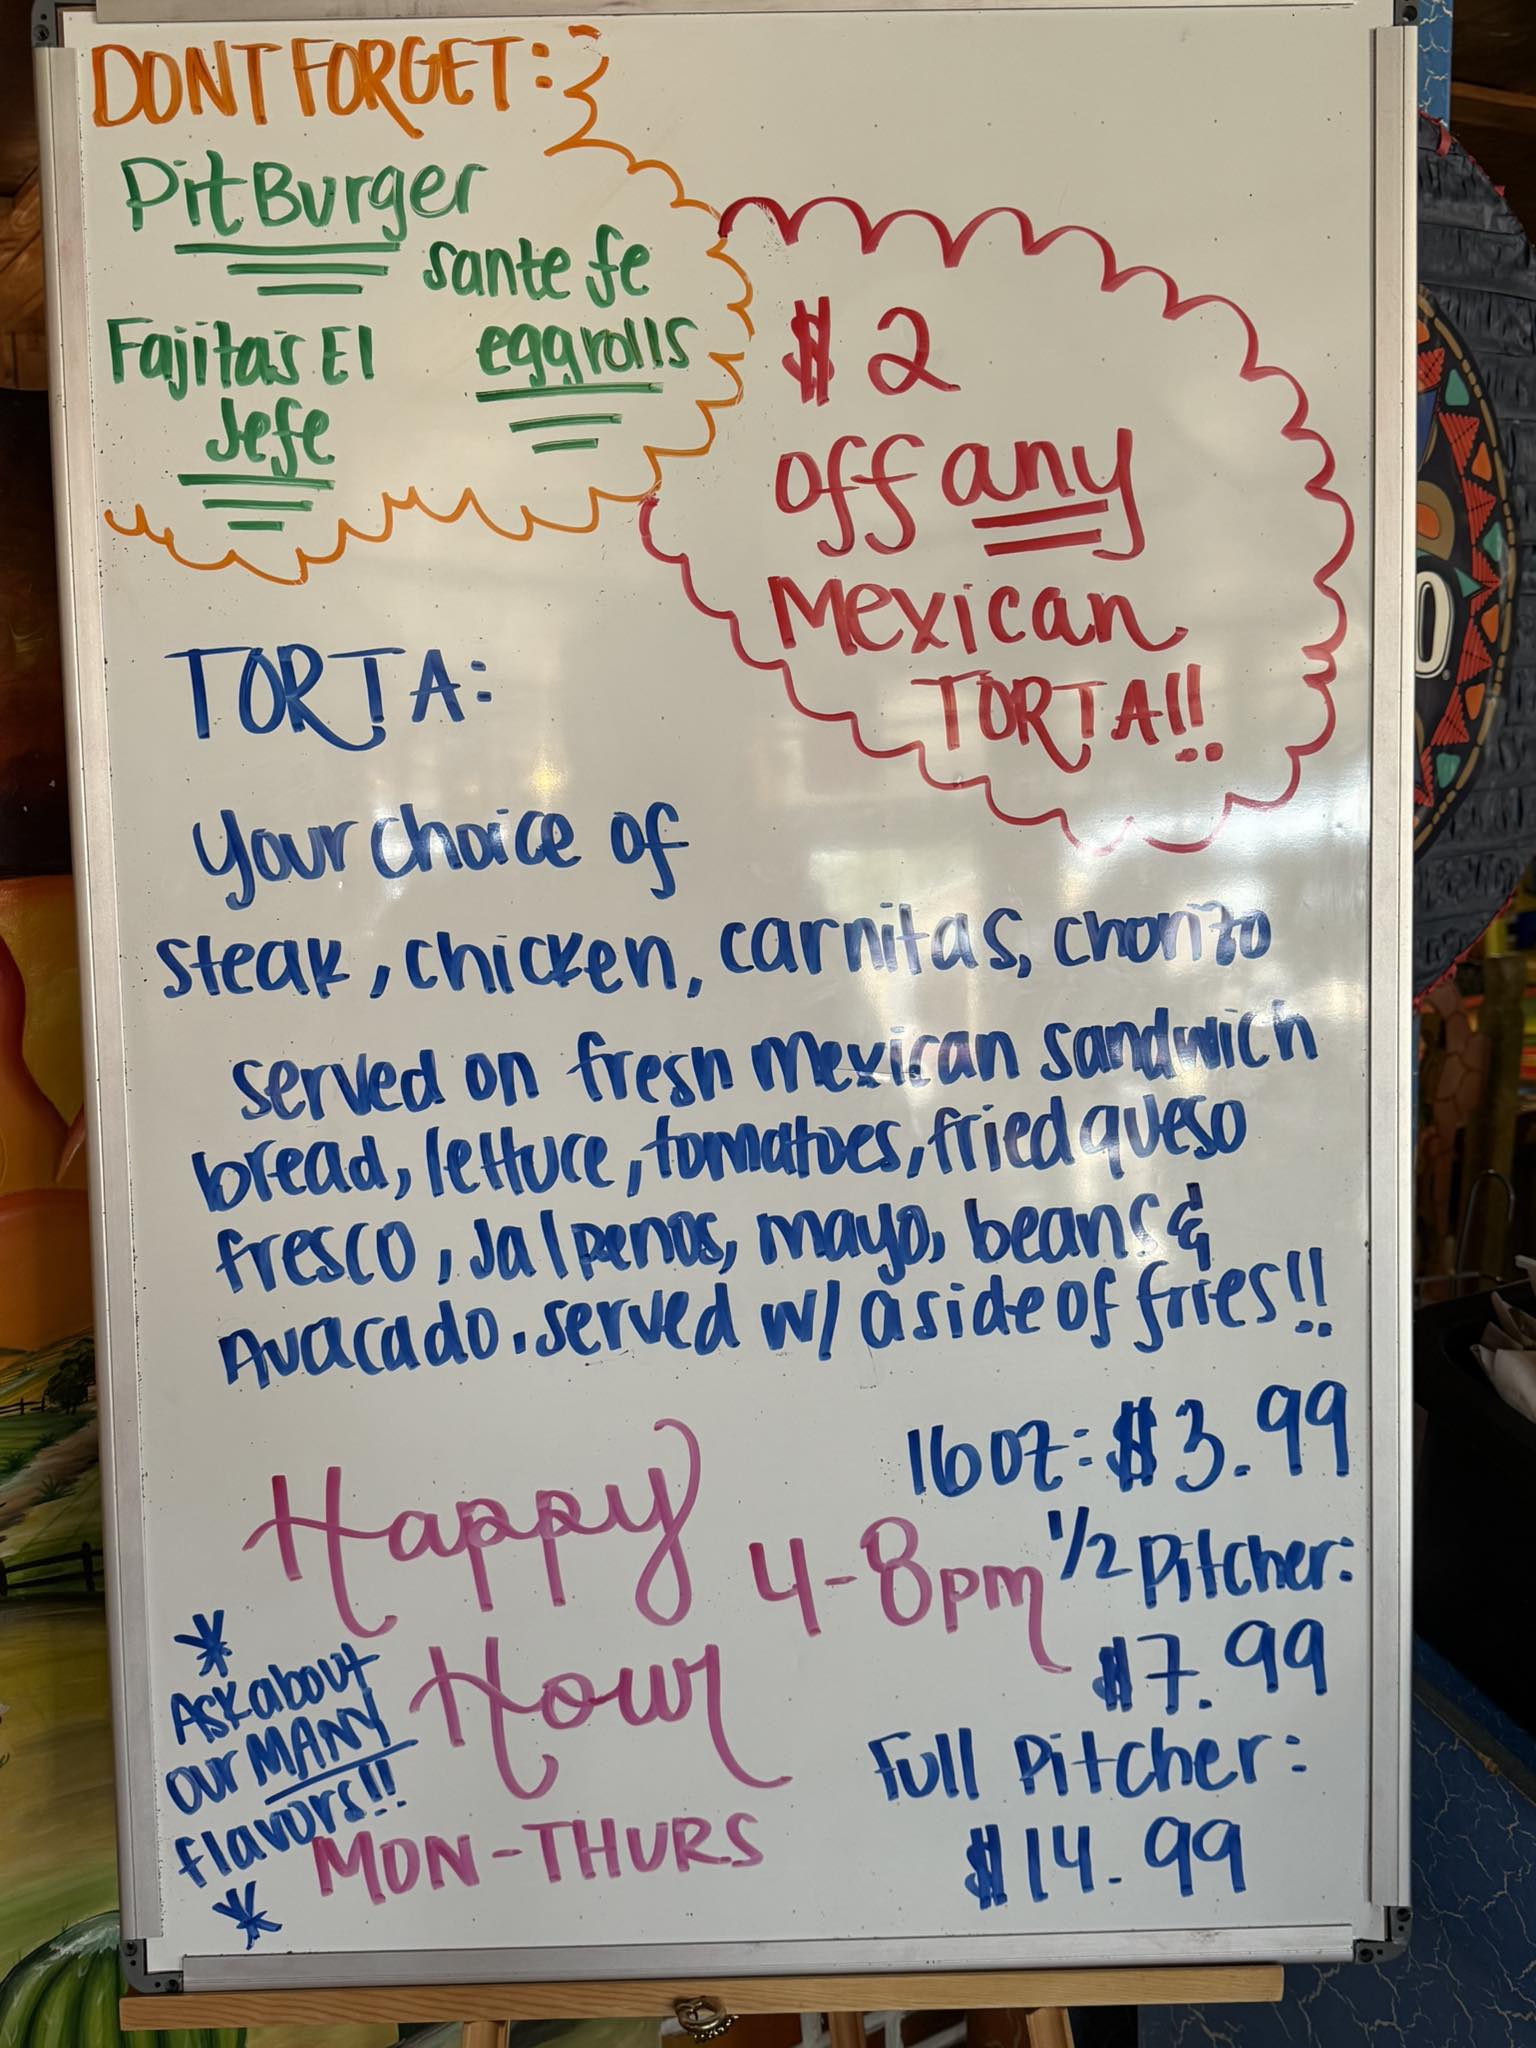 DONT FORGET:
Pit Burger
sante fe
eggrolls
Fajitas El
Jefe
$2
off any
Mexican
TORTA!!
TORTA:
your choice of
steak, chicken, carnitas, chorizo
served on fresh mexican sandwich
bread, lettuce, tomatoes, fried queso
fresco, Jalpenos, mayo, beans &
Avacado. served w/ a side of fries!!
Happy
Hour
4-8pm
MON-THURS
16oz: $3.99
1/2 Pitcher:
$7.99
Full Pitcher:
$14.99
*
Ask about
our MANY
flavors!!
*